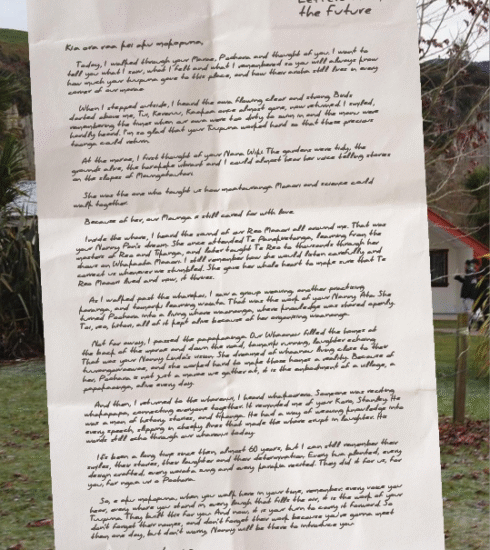 the Future
Kia ora raa koi oku mokopuna,
Today, I walked through your Marae, Pachara and thought of you. I want to
tell you what I saw, what I felt and what I remembered so you will always know
how much your tuupuna gave to this place, and how their aroha still lives in every
corner of our marae
When I stepped outside, I heard the awa flowing clear and strong. Birds
darted above me, Tui, Kereruu, Kaakaa once almost gone, now returned. I smiled,
remembering the times when our awa were too dirty to swim in and the manu were
hardly heard. I'm so glad that your Tuupuna worked hard so that these precious
taonga could return.
At the marae, I first thought of your Nana Wiki. The gardens were tidy, the
grounds alive, the harakeke vibrant and I could almost hear her voice telling stories
on the slopes of
She was the one who taught us how maatauranga Maaori and science could
walk together.
Because of her, our Maunga is still cared for with love
Inside the whare, I heard the sound of our Reo Maaori all around me. That was
your Nanny Pani's dream. She once attended Te learning from the
masters of Reo and Tikanga, and later taught Te Reo to thousands through her
show on Whakaata Maaori. I still remember how she would listen carefully and
correct us whenever we stumbled. She gave her whole heart to make sure that Te
Reo Maaori lived and now, it thrives.
As I walked past the wharekai, I saw a group weaving, another practising
and tamariki learning waiata. That was the work of your Nanny Ata. She
turned Pachara into a living whare waananga, where knowledge was shared openly.
Toi, reo, all of it kept alive because of her waananga.
Not far away, I passed the papakaainga. Our Whaanau filled the houses at
the back of the marae and down the road, tamariki running, laughter echoing.
That was your Nanny Linda's vision. She dreamed of whaanau living close to their
tuurangawaewae, and she worked hard to make those homes a reality. Because of
her, Pachara is not just a marae we gather at, it is the embodiment of a village, a
papakaainga, alive every day.
And then, I returned to the wharenui, I heard whaikoorero. Someone was reciting
whakapapa, connecting everyone together. It reminded me of your Koro, Stanley. He
was a man of history, stories, and tikanga. He had a way of weaving knowledge into
every speech, slipping in cheeky lines that made the whare erupt in laughter. His
words still echo through our wharenui today.
It's been a long time since then, almost 60 years, but I can still remember their
smiles, their stories, their laughter and their determination. Every hui planted, every
design crafted, every waiata sung and every karakia recited. They did it for us, for
you, for ngaa uri o Pachara.
So, e oku mokopuna, when you walk here in your time, remember, every voice you
hear, every where you stand in, every laugh that fills the air, it is the work of your
Tuupuna. They built this for you. And now, it is your turn to carry it forward. So
don't forget their names, and don't forget their work because you're gonna meet
them one day, but don't worry, Nanny will be there to introduce you